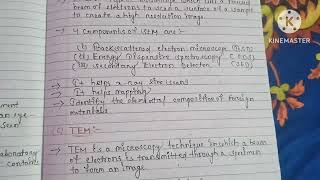 beam of electrons to scan a surface of a sample
to create a high resolution image.
4 components of SEM are:
(i) Backscattered electron microscope (BSD)
(ii) Energy Dispensive spectroscopy (EDS)
(iii) secondary Electron Detector (SED)
It helps x-ray
It helps mapping
Identify the elemental composition of foreign
materials
TEM:-
TEM is a microscopy technique in which a beam
of electrons is transmitted through a specimen
to form an image
ment
eye
seen
laboratory
contents
KINEMASTER